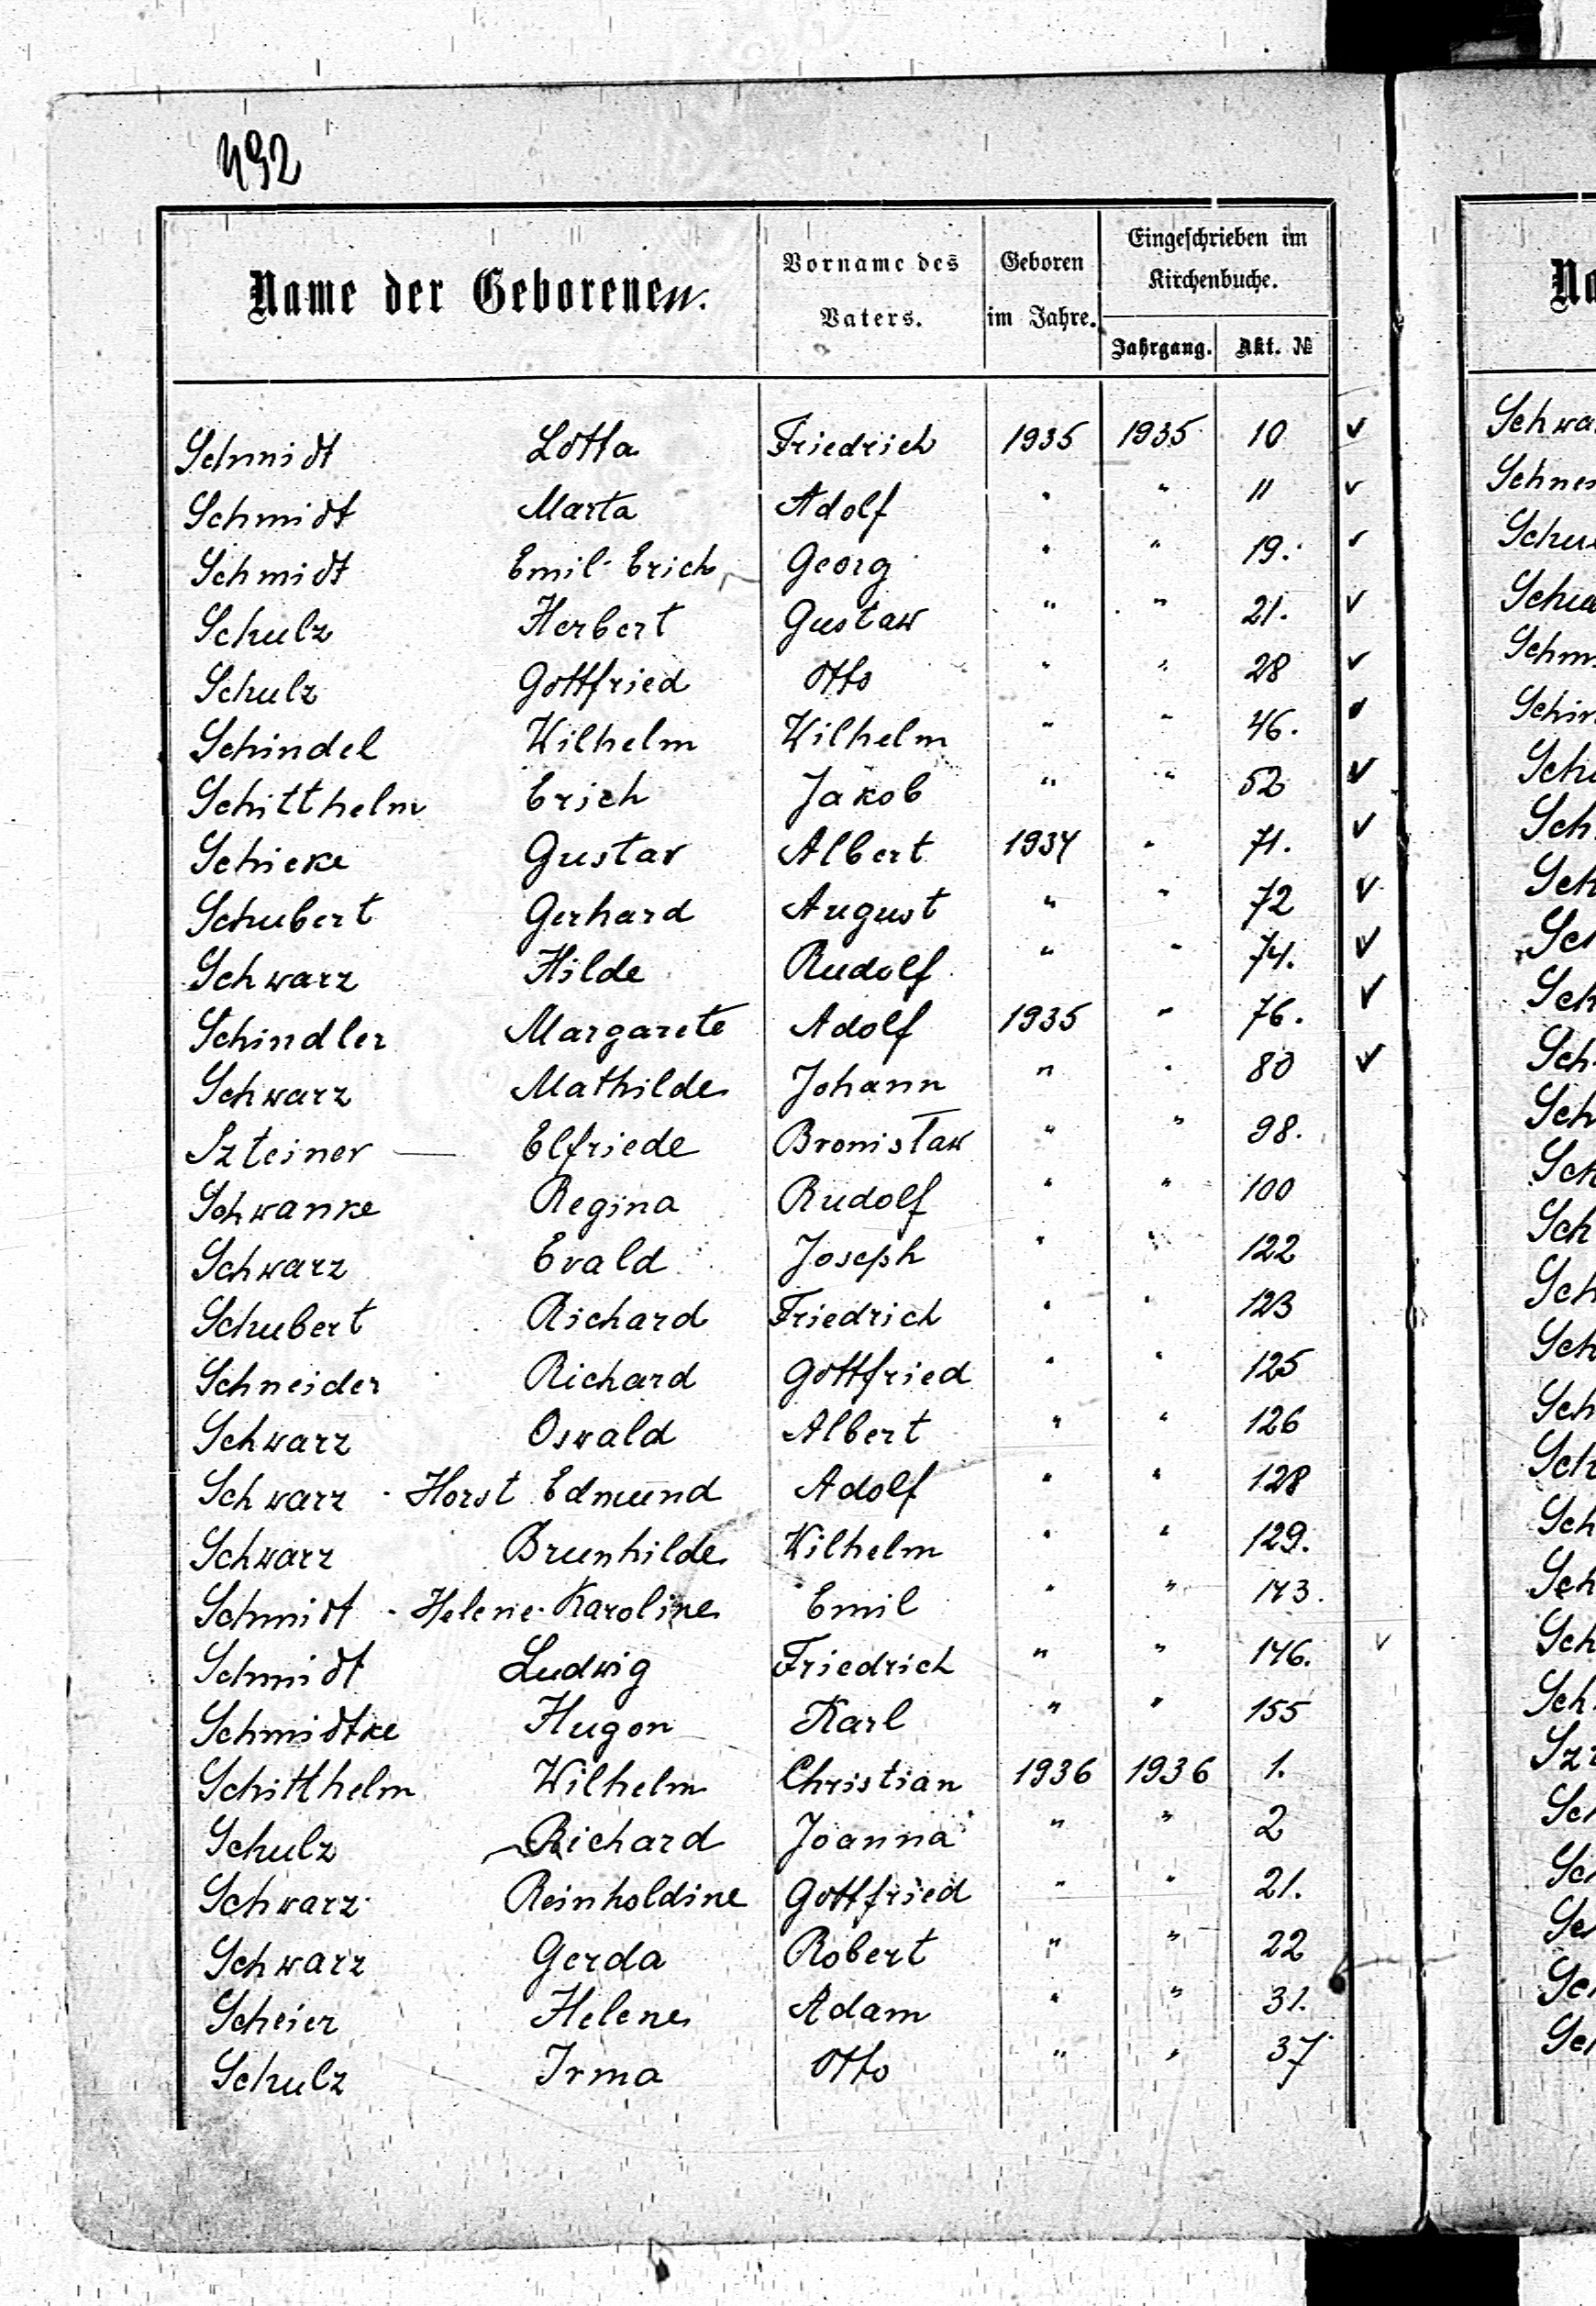 492
Name der Geborenen.
Vorname des Vaters.
Geboren im Jahre.
Eingeschrieben im Kirchenbuche.
Jahrgang. Akt. №
Schmidt Lotta Friedrich 1935 1935 10 ✓
Schmidt Marta Adolf " " 11 ✓
Schmidt Emil Erich Georg " " 19. ✓
Schulz Herbert Gustaw " " 21. ✓
Schulz Gottfried Otto " " 28 ✓
Schindel Wilhelm Wilhelm " " 46. ✓
Schitthelm Erich Jakob " " 52 ✓
Schieke Gustav Albert 1934 " 71. ✓
Schubert Gerhard August " " 72 ✓
Schwarz Hilde Rudolf " " 74. ✓
Schindler Margarete Adolf 1935 " 76. ✓
Schwarz Mathilde Johann " " 80 ✓
Szteiner — Elfriede Bronisław " " 98.
Schwanke Regina Rudolf " " 100
Schwarz Evald Joseph " " 122
Schubert Richard Friedrich " " 123
Schneider Richard Gottfried " " 125
Schwarz Oswald Albert " " 126
Schwarz - Horst Edmund Adolf " " 128
Schwarz Brunhilde Wilhelm " " 129.
Schmidt - Helene Karoline Emil " " 143.
Schmidt Ludwig Friedrich " " 146. ✓
Schmidtke Hugon Karl " " 155
Schitthelm Wilhelm Christian 1936 1936 1.
Schulz Richard Joanna " " 2
Schwarz Reinholdine Gottfried " " 21.
Schwarz Gerda Robert " " 22
Scheier Helene Adam " " 31.
Schulz Irma Otto " " 37